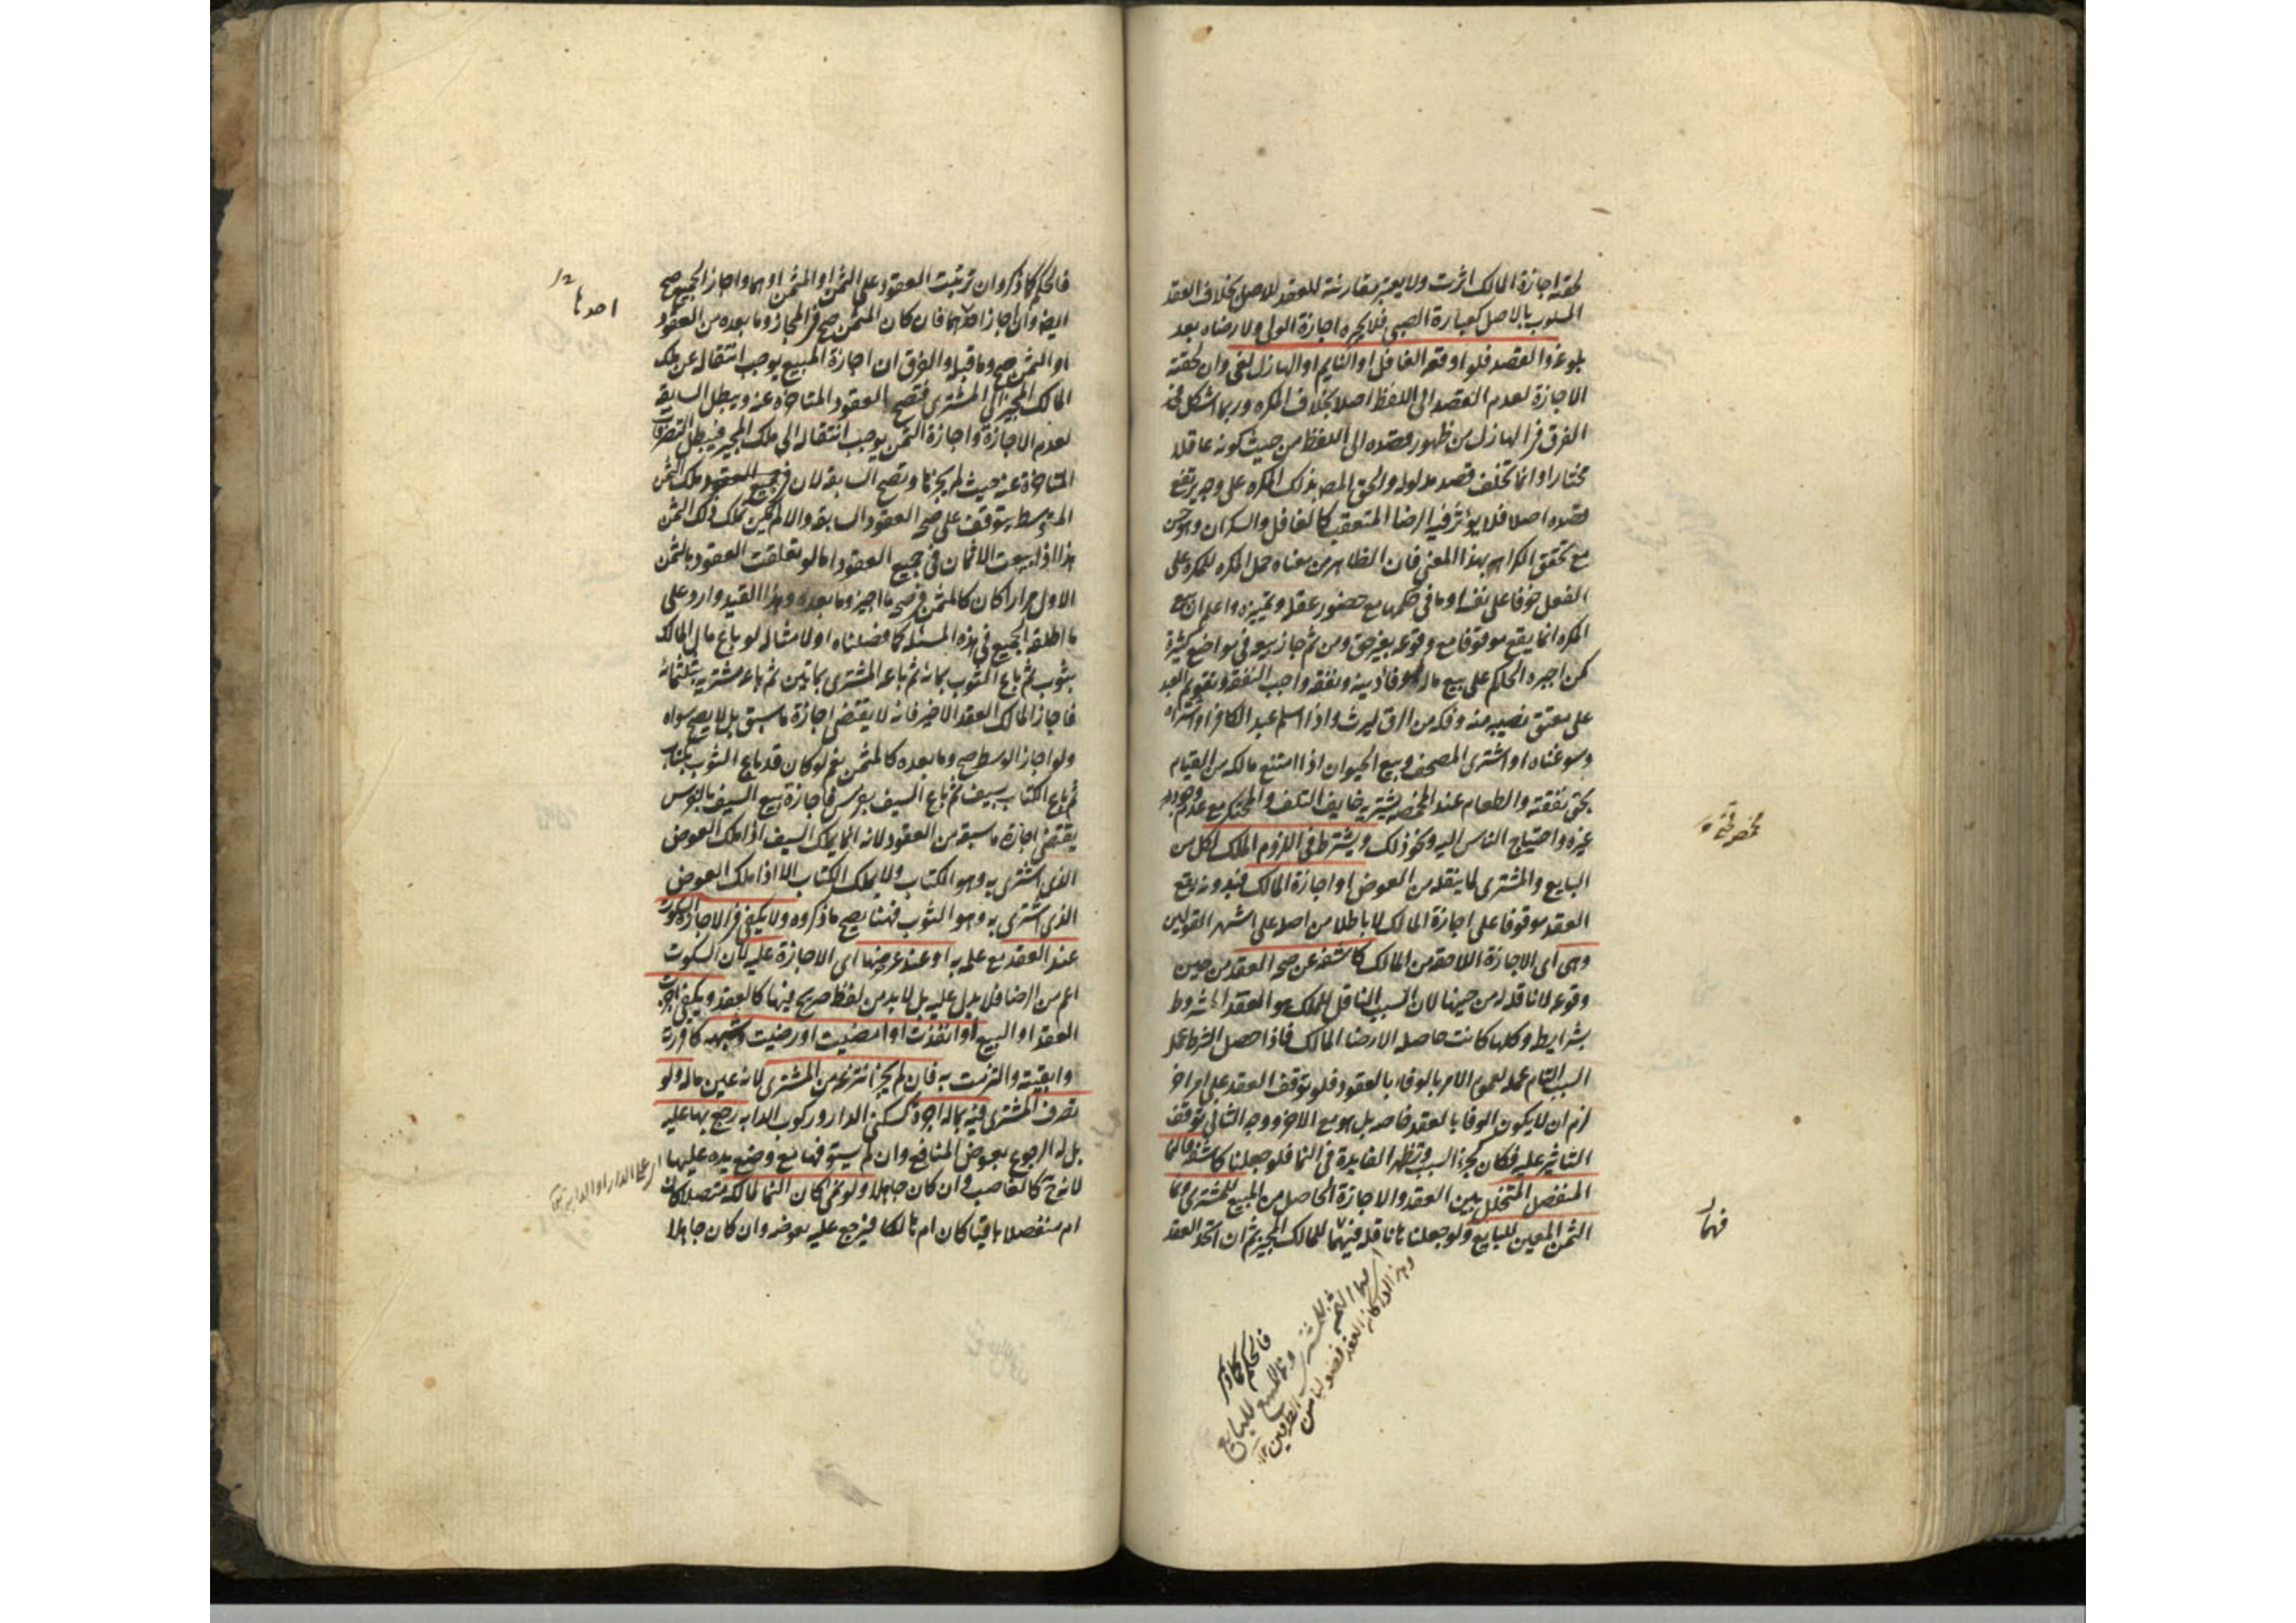 لحقته اجازة المالك اثرت ولا يعتبر مقارنته للعقد للاصل بخلاف العقد
المسلوب بالاصل كعبارة الصبي فلا تجبره اجازة الولي ولا رضاه بعد
بلوغه والقصد فلو اوقعه الغافل او النايم او الهازل لغى وان لحقته
الاجازة لعدم القصد الى اللفظ اصلا بخلاف المكره وربما اشكل
الفرق في الهازل من ظهور قصده الى اللفظ من حيث كونه عاقلا
مختارا وانما تخلف قصد مدلوله والحق المصـ بذلك المكره على وجه يرتفع
قصده اصلا فلا يؤثر فيه الرضا المتعقب كالغافل والسكران وهو حسن
مع تحقق الاكراه بهذا المعنى فان الظاهر من معناه حمل المكره للمكره على
الفعل خوفا على نفسه او ما في حكمها مع حضور عقله وتميزه واعلم ان بيع
المكره انما يقع موقوفا مع وقوعه بغير حق ومن ثم جاز بيعه في مواضع كثيرة
كمن اجبره الحاكم على بيع ماله لوفا دينه ونفقة واجب النفقة وتقويم العبد
على معتق نصيبه منه وفكه من الرق ليرث واذا اسلم عبد الكافر او اشتراه
وسوغناه او اشترى المصحف وبيع الحيوان اذا امتنع مالكه من القيام
بحق نفقته والطعام عند المخمصة يشتريه خايف التلف والمحتكر مع عدم وجود
غيره واحتياج الناس اليه ونحو ذلك ويشترط في اللزوم الملك لكل من
البايع والمشتري لما ينقله من العوض او اجازة المالك فبدونه يقع
العقد موقوفا على اجازة المالك لا باطلا من اصله على اشهر القولين
وهي اى الاجازة اللاحقة من المالك كاشفة عن صحة العقد من حين
وقوعه لا ناقلة له من حينها لان السبب الناقل للملك هو العقد المشروط
بشرايطه وكلها كانت حاصلة الا رضا المالك فاذا حصل الشرط عمل
السبب التام عمله لعموم الامر بالوفاء بالعقود فلو توقف العقد على امر اخر
لزم ان لا يكون الوفا بالعقد خاصة بل هو مع الاخر ووجه الثاني توقف
التاثير عليه فكان كجزء السبب وتظهر الفايدة في النما فلو جعلنا كاشفة فالنما
المنفصل المتخلل بين العقد والاجازة الحاصل من المبيع للمشتري ونما
الثمن المعين للبايع ولو جعلناها ناقلة فهما للمالك المجيز ثم ان اتحد العقد
مخمصه قحته
فهما
فالحكم كما ذكر
فالحكم كما ذكر وان ترتبت العقود على الثمن او المثمن او هما واجاز الجميع صح
ايضا وان اجاز احدهما فان كان المثمن صح في المجاز وما بعده من العقود
او الثمن صح وما قبله والفرق ان اجازة المبيع يوجب انتقاله عن ملك
المالك المجيز الى المشتري فتصح العقود المتاخرة عنه ويبطل السابقة
لعدم الاجازة واجازة الثمن يوجب انتقاله الى ملك المجيز فيبطل التصرفات
المتاخرة عنه حيث لم يجزها وتصح السابقة لان ملك الثمن
المتوسط يتوقف على صحة العقود السابقة والا لم يمكن تملك ذلك الثمن
هذا اذا بيعت الاثمان في جميع العقود اما لو تعلقت العقود بالثمن
الاول مرارا كان كالمثمن في صحة ما اجيز وما بعده وهذا القيد وارد على
ما اطلقه الجميع في هذه المسئلة كما فصلناه اولا مثاله لو باع مال المالك
بثوب ثم باع الثوب بمائة ثم باعه المشتري بمايتين ثم باعه مشتريه بثلثمائة
فاجاز المالك العقد الاخير فانه لا يقتضي اجازة ما سبق بل لا يصح سواه
ولو اجاز الوسط صح وما بعده كالمثمن نعم لو كان قد باع الثوب بكتاب
ثم باع الكتاب بسيف ثم باع السيف بفرس فاجازة بيع السيف بالفرس
يقتضي اجازة ما سبقه من العقود لانه انما يملك السيف اذا ملك العوض
الذي اشترى به وهو الكتاب ولا يملك الكتاب الا اذا ملك العوض
الذي اشترى به وهو الثوب فهنا يصح ما ذكروه ولا يكفي في الاجازة السكوت
عند العقد مع علمه به او عند عرضها اى الاجازة عليه لان السكوت
اعم من الرضا فلا يدل عليه بل لا بد من لفظ صريح فيها كالعقد ويكفي اجزت
العقد او البيع او انفذت او امضيت او رضيت وشبهه كاقررته
وابقيته والتزمت به فان لم يجز انتزعه من المشتري لانه عين ماله ولو
تصرف المشتري فيه بماله اجرة كسكنى الدار وركوب الدابة رجع بها عليه
بل له الرجوع بعوض المنافع وان لم يستوفها مع وضع يده عليها
لانه ح كالغاصب وان كان جاهلا ولو نمى كان النما لمالكه متصلا كان
ام منفصلا باقيا كان ام هالكا فيرجع عليه بعوضه وان كان جاهلا
احدها